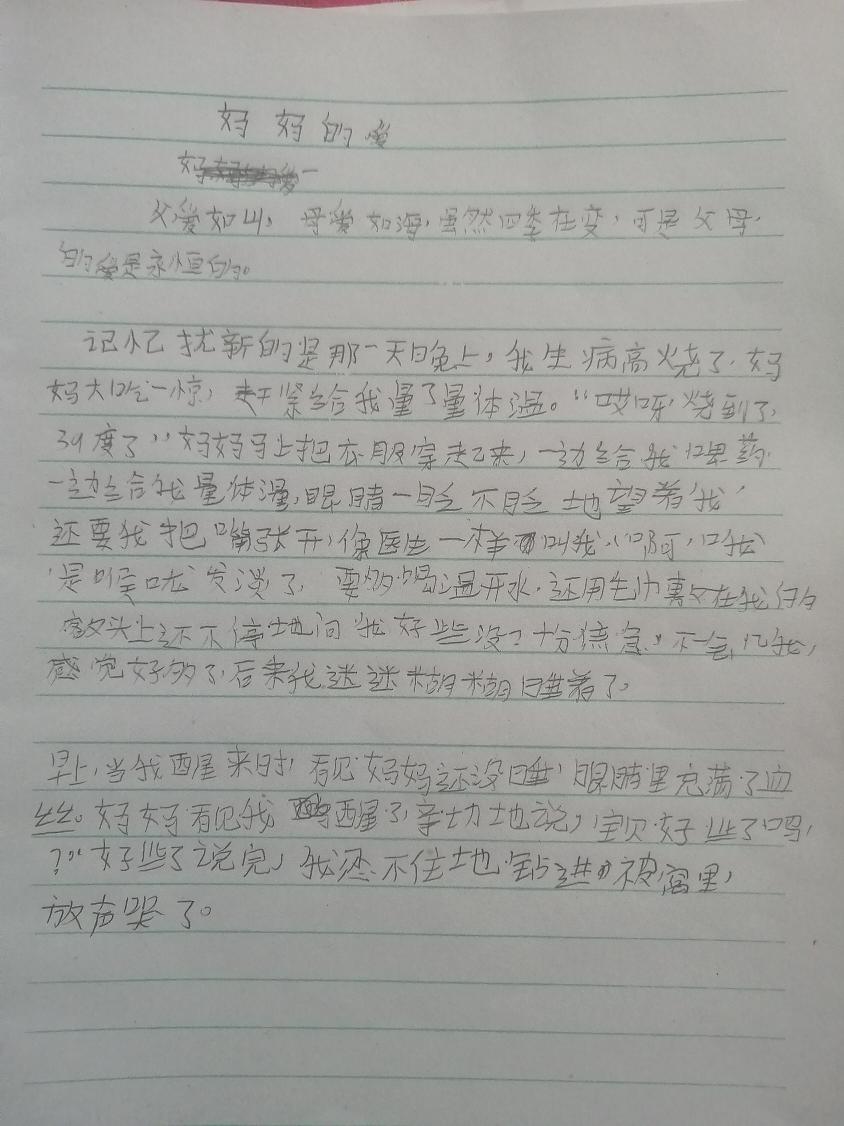 妈妈的爱
父爱如山，母爱如海，虽然四季在变，可是父母，
的爱是永恒的。
记忆扰新的是那一天晚上，我生病高烧了，妈
妈大吃一惊，赶紧给我量了量体温。“哎呀，烧到了，
39度了”妈妈马上把衣服穿起来，一边给我喂药
一边给我量体温，眼睛一眨不眨地望着我，
还要我把嘴张开，像医生一样叫我，“啊，
是喉咙发淡了，要多喝温开水，还用毛巾裹在我的
额头上还不停地问我好些没？十分焦急。不一会儿我，
感觉好多了，后来我迷迷糊糊睡着了。
早上，当我醒来时，看见妈妈还没睡，眼睛里充满了血
丝。妈妈看见我醒了，亲切地说，宝贝好些了吗，
？”好些了说完，我忍不住地钻进被窝里，
放声哭了。